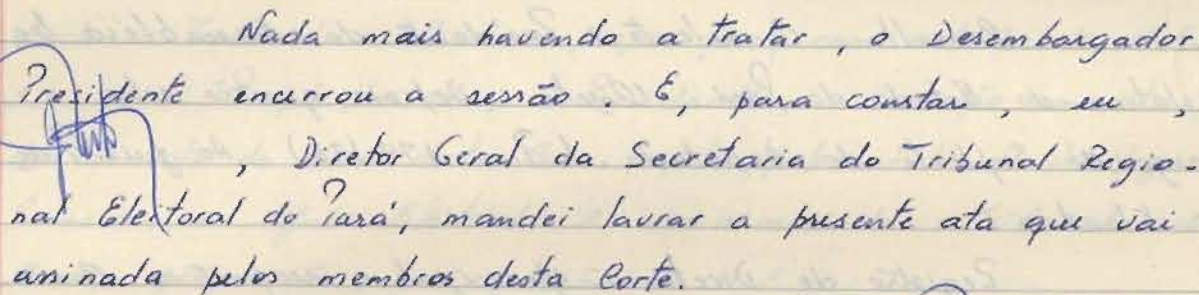 Nada mais havendo a tratar, o Desembargador
Presidente encerrou a sessão. E, para constar, eu,
, Diretor Geral da Secretaria do Tribunal Regio-
nal Eleitoral do Pará, mandei lavrar a presente ata que vai
assinada pelos membros desta Corte.